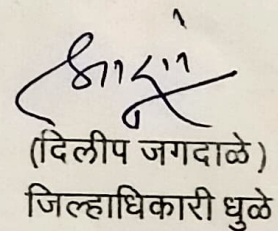 (दिलीप जगदाळे)
जिल्हाधिकारी धुळे